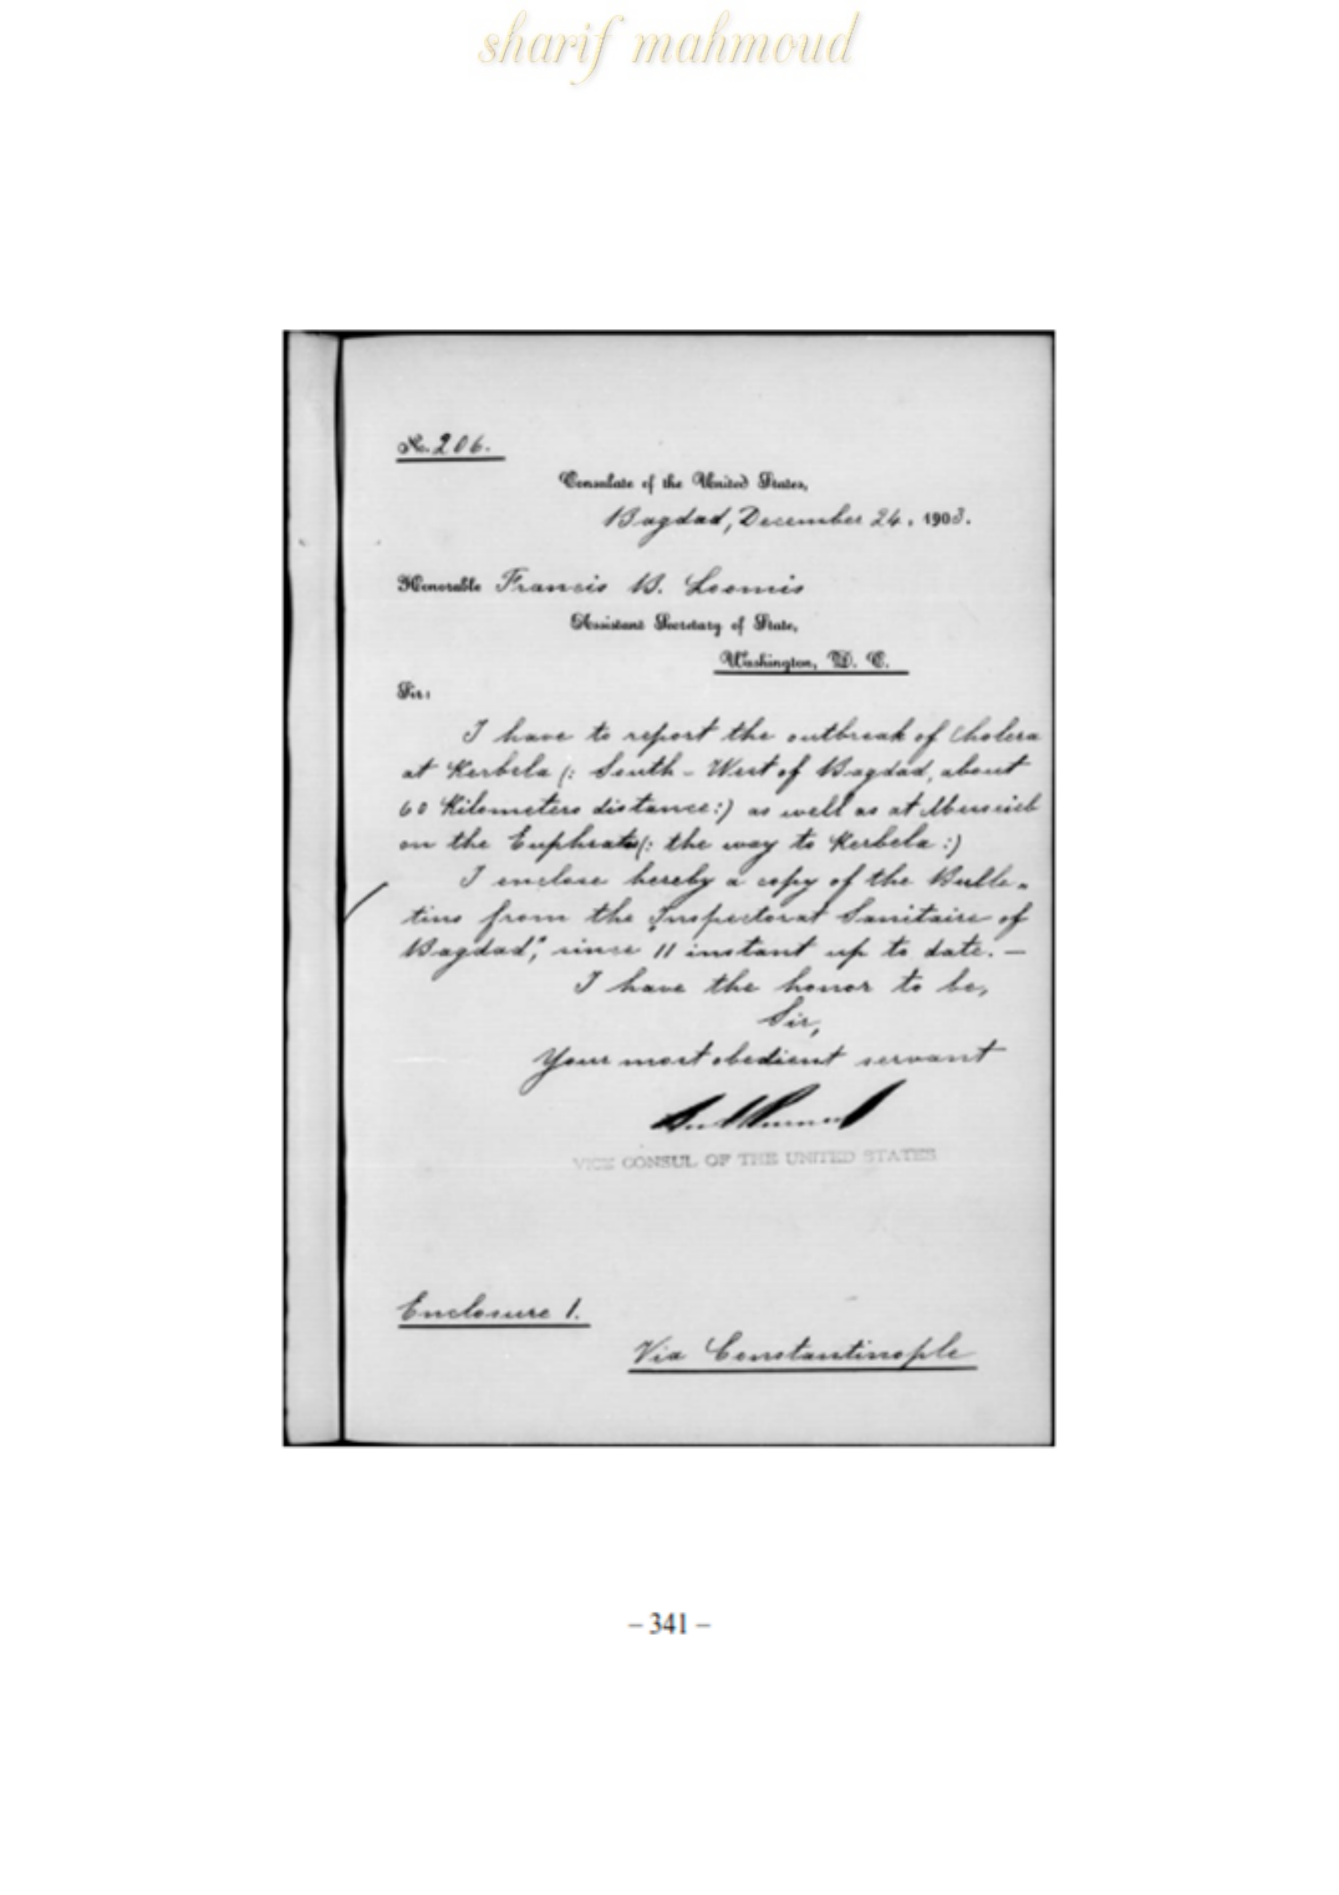 sharif mahmoud
No. 206.
Consulate of the United States,
Bagdad, December 24, 1903.
Honorable Francis B. Loomis
Assistant Secretary of State,
Washington, D. C.
Sir:
I have to report the outbreak of Cholera
at Kerbela (: South-West of Bagdad, about
60 Kilometers distance:) as well as at Museieb
on the Euphrates (: the way to Kerbela :)
I enclose hereby a copy of the Bulle-
tins from the "Inspectorat Sanitaire of
Bagdad", since 11 instant up to date. –
I have the honor to be,
Sir,
Your most obedient servant
VICE CONSUL OF THE UNITED STATES
Enclosure 1.
Via Constantinople
– 341 –